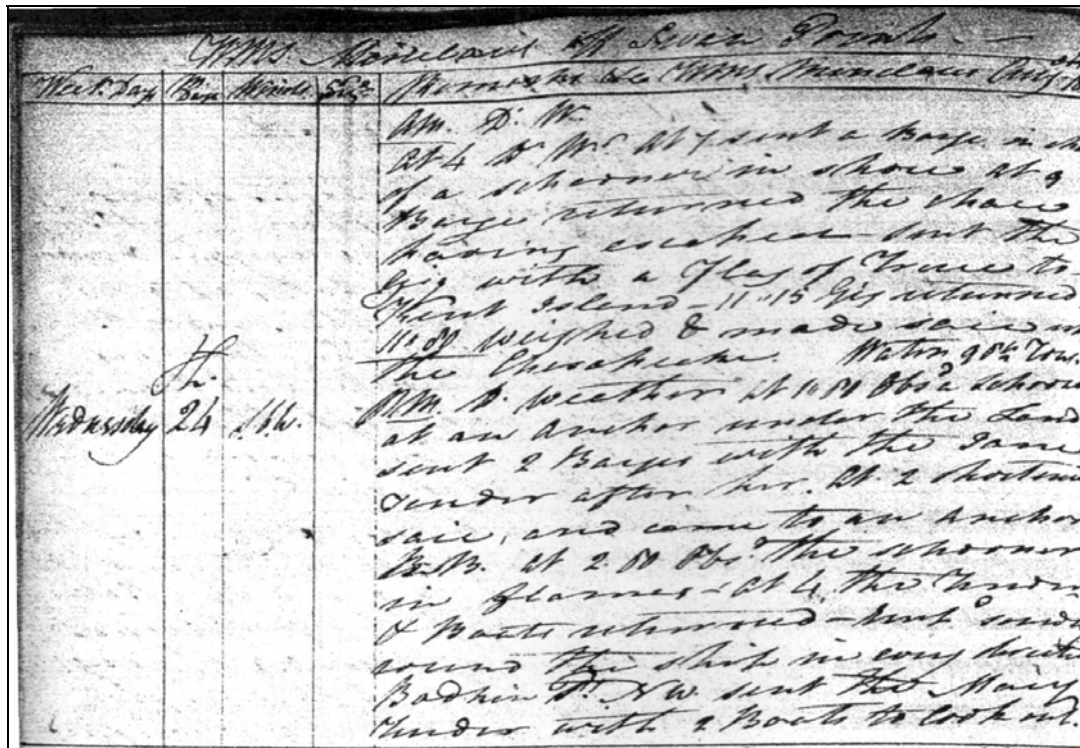 HMS Menelaus off Swan Point
Week Day Winds Remarks &c HMS Menelaus Aug
AM. Do W.
At 4 Do Wr. At 7 sent a Barge in
of a schooner in shore at 9
Barge returned the chace
having escaped – sent the
Gig with a Flag of Truce to
Kent Island – 11.15 Gig returned
weighed & made sail
the Chesapeake. Water Tons.
Wednesday 24 PM. Do weather at Obsd a schooner
at an anchor under the Land
sent 2 Barges with the Jane
Tender after her. At 2 shortened
sail, and came to an anchor
at 2. Obsd the schooner
in flames – at 4 the
& Boats returned – sent
round the ship in every
Bodkin Pt NW. sent the Mary
Tender with 2 Boats to look out.